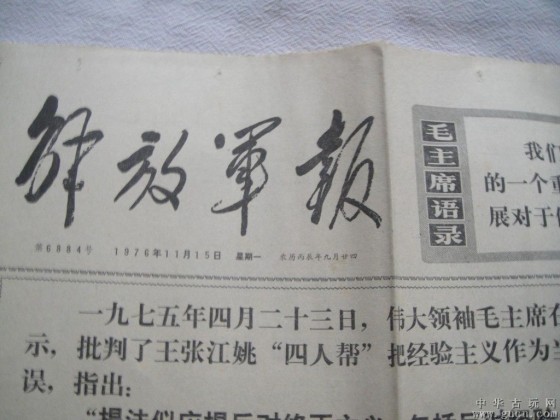 解放军报
第6884号 1976年11月15日 星期一 农历丙辰年九月廿四
毛主席语录
我们
的一个重
展对于
一九七五年四月二十三日，伟大领袖毛主席在
示，批判了王张江姚“四人帮”把经验主义作为当
误，指出：
“提法似应提反对修正主义，包括反
中华古玩网
www.gucn.com